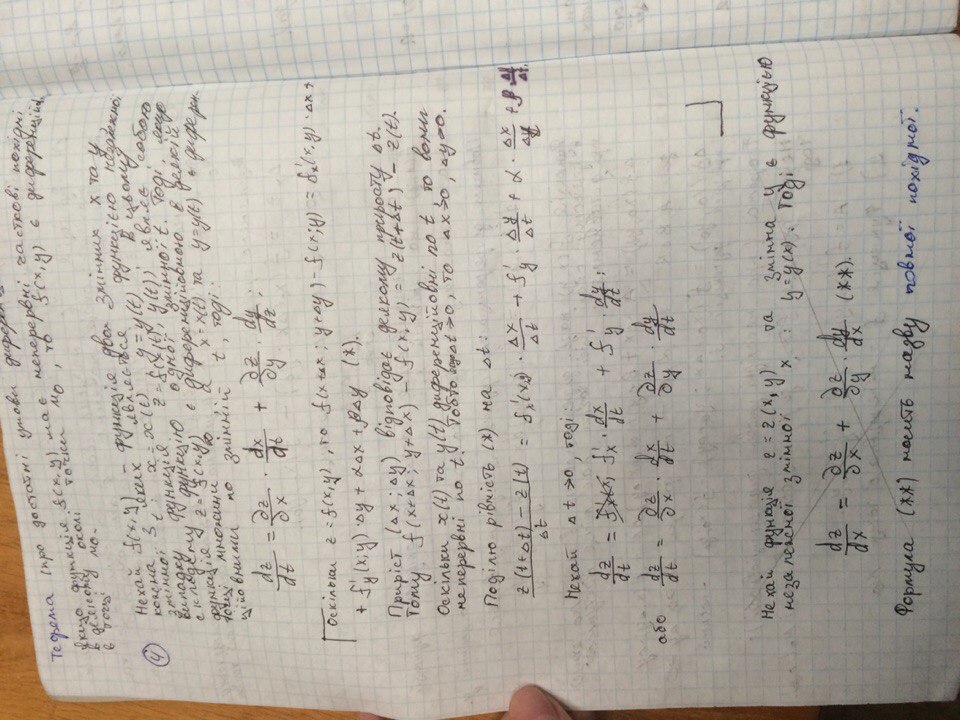 Теорема (про достатні умови диферен
якщо функція f(x,y) має неперервні часткові похідні
в деякому околі точки M₀, то f(x,y) є диференційо
в точці M₀.
④ Нехай f(x,y) – функція двох змінних x та y
кожна з яких являється функцією незалежної
змінної t: x=x(t), y=y(t). В цьому
випадку функція z=f(x(t), y(t)) являє собою
складену функцію одної змінної t. Тоді, якщо
функція z=f(x,y) є диференційовною в деякій
точці множини D, а x=x(t) та y=y(t) є диферен-
ційовними по змінній t, тоді:
dz/dt = ∂z/∂x · dx/dt + ∂z/∂y · dy/dz;
Оскільки z=f(x,y), то f(x+Δx; y+Δy) – f(x;y) = f'x(x,y)·Δx+
+ f'y(x;y)·Δy + αΔx + βΔy (*).
Приріст (Δx; Δy) відповідає деякому приросту Δt.
Тому f(x+Δx; y+Δx) – f(x,y) = z(t+Δt) – z(t).
Оскільки x(t) та y(t) диференційовні по t, то вони
неперервні по t. Тобто Δt→0, то Δx→0, Δy→0.
Поділю рівність (*) на Δt:
z(t+Δt) – z(t)/Δt = f'x(x,y) · Δx/Δt + f'y · Δy/Δt + α · Δx/Δy + β Δy/Δt.
Нехай Δt→0, тоді:
dz/dt = f'x · dx/dt + f'y · dy/dt;
або dz/dt = ∂z/∂x · dx/dt + ∂z/∂y · dy/dt
Нехай функція z=z(x,y) та змінна y є функцією
незалежної змінної x: y=y(x). Тоді
dz/dx = ∂z/∂x + ∂z/∂y · dy/dx (**).
Формула (**) носить назву повної похідної.